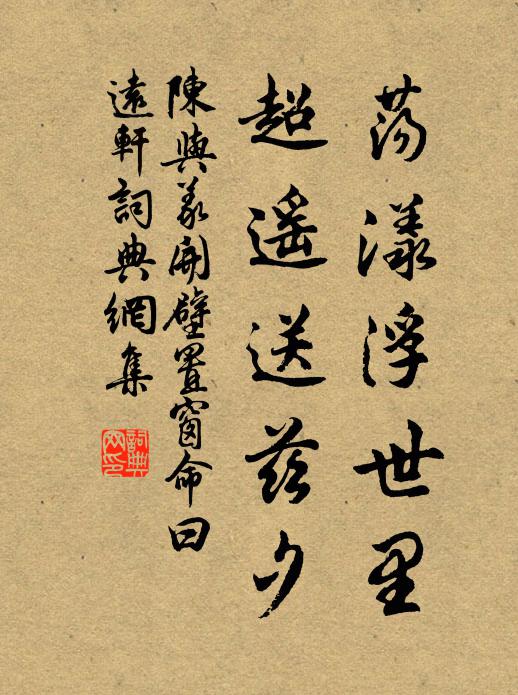 蕩漾浮世里
超遥送茲夕
陳與義開壁置窗命曰
遠軒詞典網集
詞典
网印